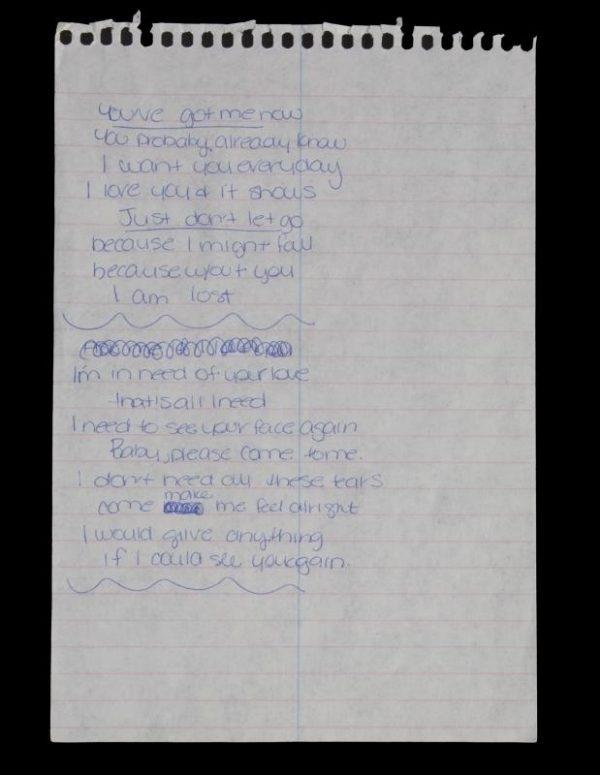 You've got me now
You probaby already know
I want you everyday
I love you & it shows
Just don't let go
because I might fall
because w/out you
I am lost
I'm in need of your love
that is all I need
I need to see your face again
Baby, please come to me.
I don't need all these tears
come make me feel alright
I would give anything
if I could see you again.